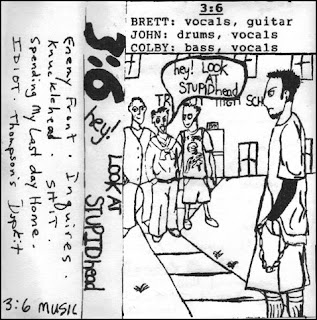 Enemy Front . Inquires .
Knucklehead . SHIT .
Spending My Last day Home .
IDIOT . Thompson's
3:6 MUSIC
3:6
hey! LOOK AT STUPIDhead
3:6
BRETT: vocals, guitar
JOHN: drums, vocals
COLBY: bass, vocals
hey! LOOK
AT
STUPIDhead
HIGH